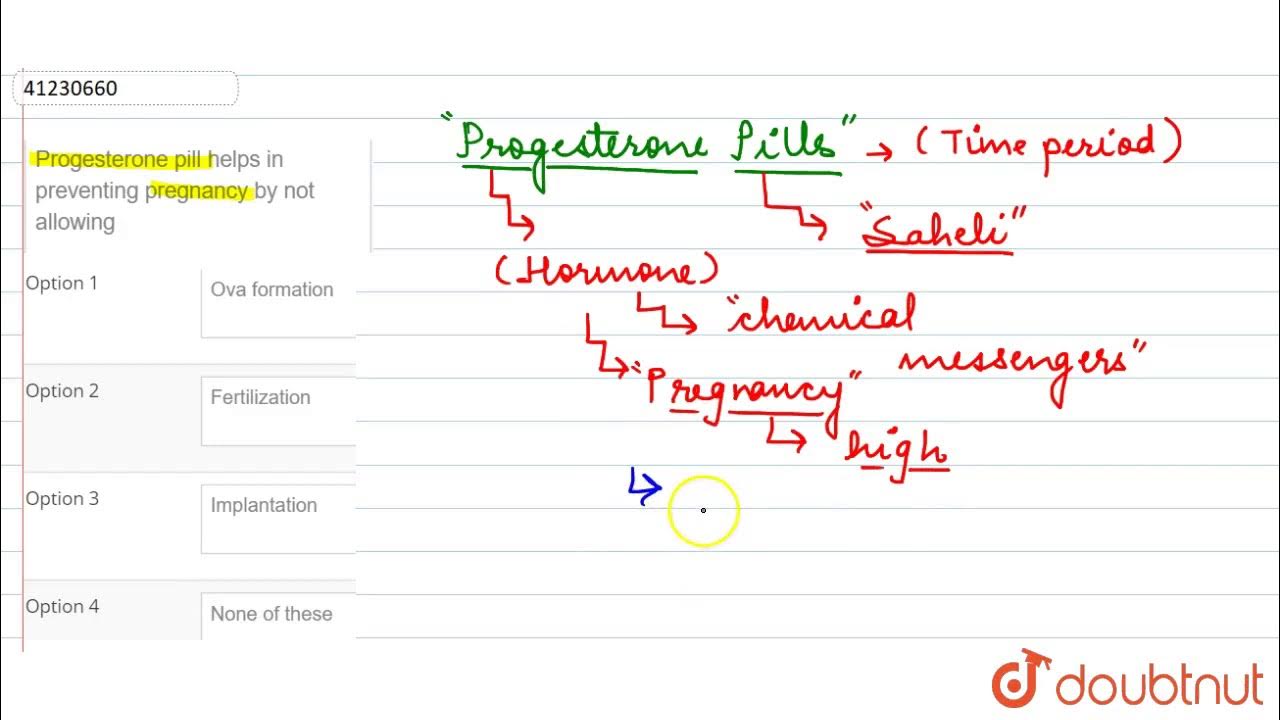 41230660
Progesterone pill helps in
preventing pregnancy by not
allowing
Option 1
Ova formation
Option 2
Fertilization
Option 3
Implantation
Option 4
None of these
"Progesterone Pills" → (Time period)
"Saheli"
(Hormone)
"chemical
messengers"
"Pregnancy"
high
doubtnut